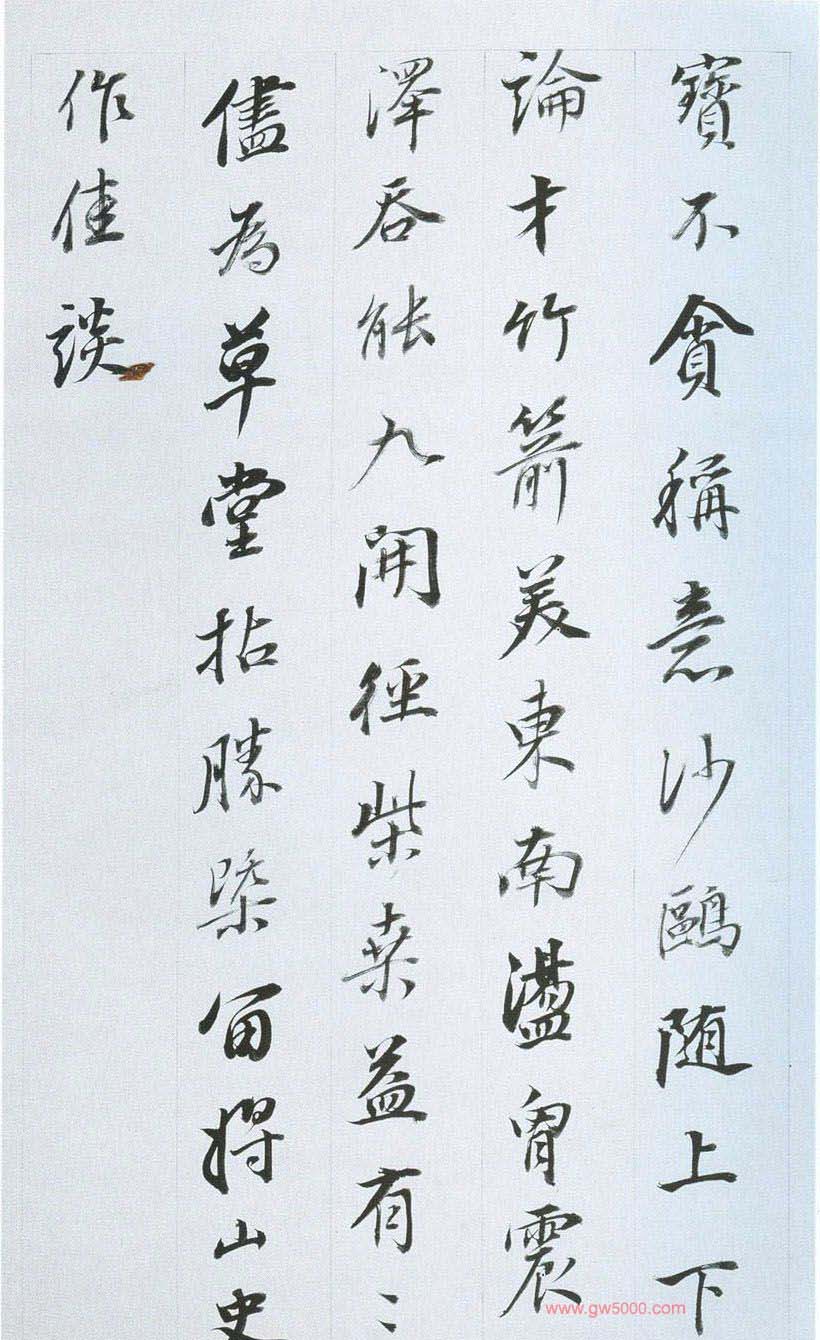 寶不貪稱意沙鷗随上下
論才竹箭美東南盪胷震
澤吞能九開徑柴桒益有〻
儘為草堂拈勝槩留将山史
作佳談
www.gw5000.com